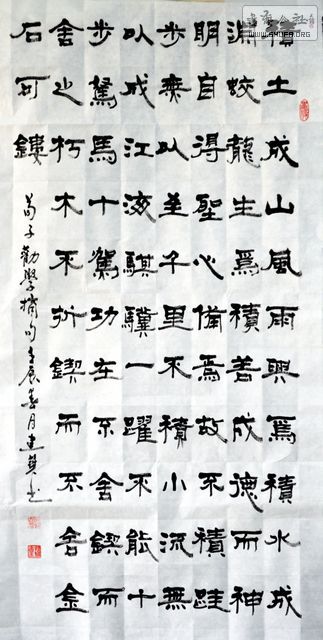 積土成山風雨興爲積水成
淵蛟龍生爲積善成德而神
明自得聖心備焉故不積跬
步無以至千里不積小流無
以成江海騏驥一躍不能十
步駑馬十駕功在不舍鍥而
舍之朽木不折鍥而不舍金
石可鏤
荀子勸學摘句壬辰春月建英書